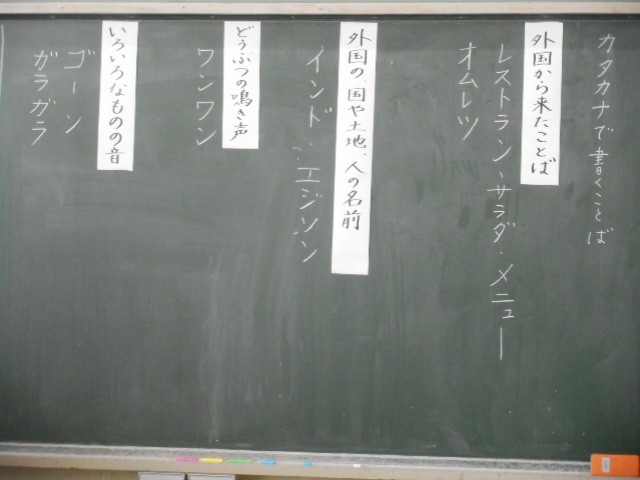 カタカナで書くことば
外国から来たことば
レストラン、サラダ、メニュー
オムレツ
外国の、国や土地、人の名前
インド
エジソン
どうぶつの鳴き声
ワンワン
いろいろなものの音
ゴーン
ガラガラ